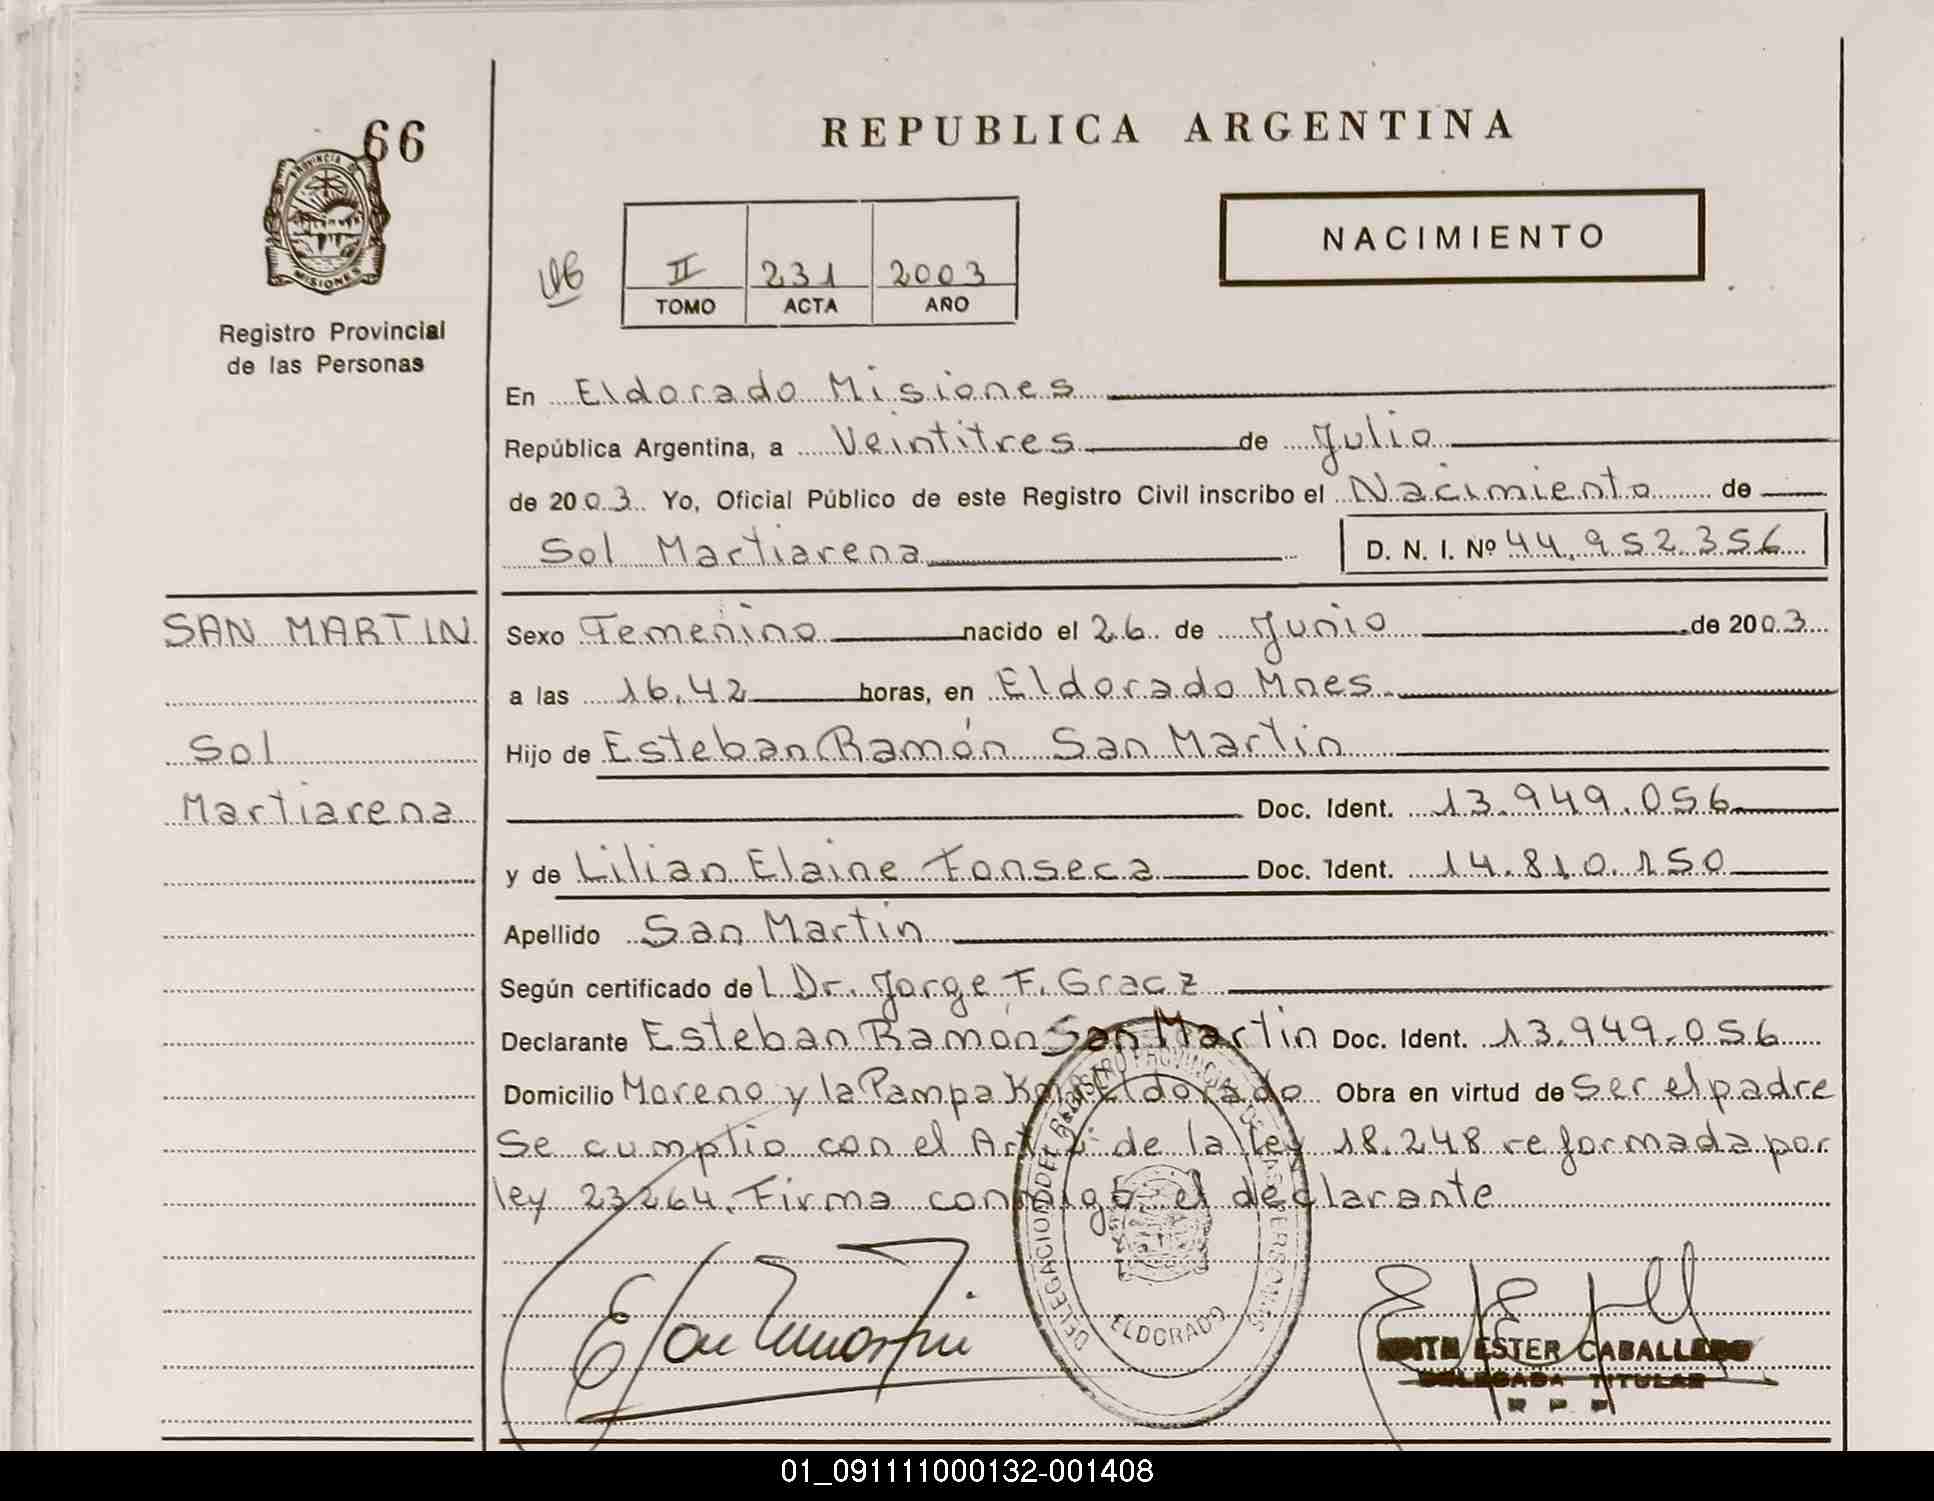 66
PROVINCIA DE
MISIONES
Registro Provincial
de las Personas
REPUBLICA ARGENTINA
NACIMIENTO
II 231 2003
TOMO ACTA AÑO
En Eldorado Misiones
República Argentina, a Veintitres de Julio
de 2003 Yo, Oficial Público de este Registro Civil inscribo el Nacimiento de
Sol Martiarena D. N. I. Nº 44.952.356
SAN MARTIN
Sol
Martiarena
Sexo Femenino nacido el 26 de Junio de 2003
a las 16.42 horas, en Eldorado Mnes
Hijo de Esteban Ramón San Martin
Doc. Ident. 13.949.056
y de Lilian Elaine Fonseca Doc. Ident. 14.810.150
Apellido San Martin
Según certificado del Dr. Jorge F. Gracz
Declarante Esteban Ramón San Martin Doc. Ident. 13.949.056
Domicilio Moreno y la Pampa Eldorado Obra en virtud de Ser el padre
Se cumplio con el Art de la ley 18.248 reformada por
ley 23264. Firma conmigo el declarante
DELEGACION DEL REGISTRO PROVINCIAL DE LAS PERSONAS
ELDORADO
EDITH ESTER CABALLERO
DELEGADA TITULAR
R P P
01_091111000132-001408